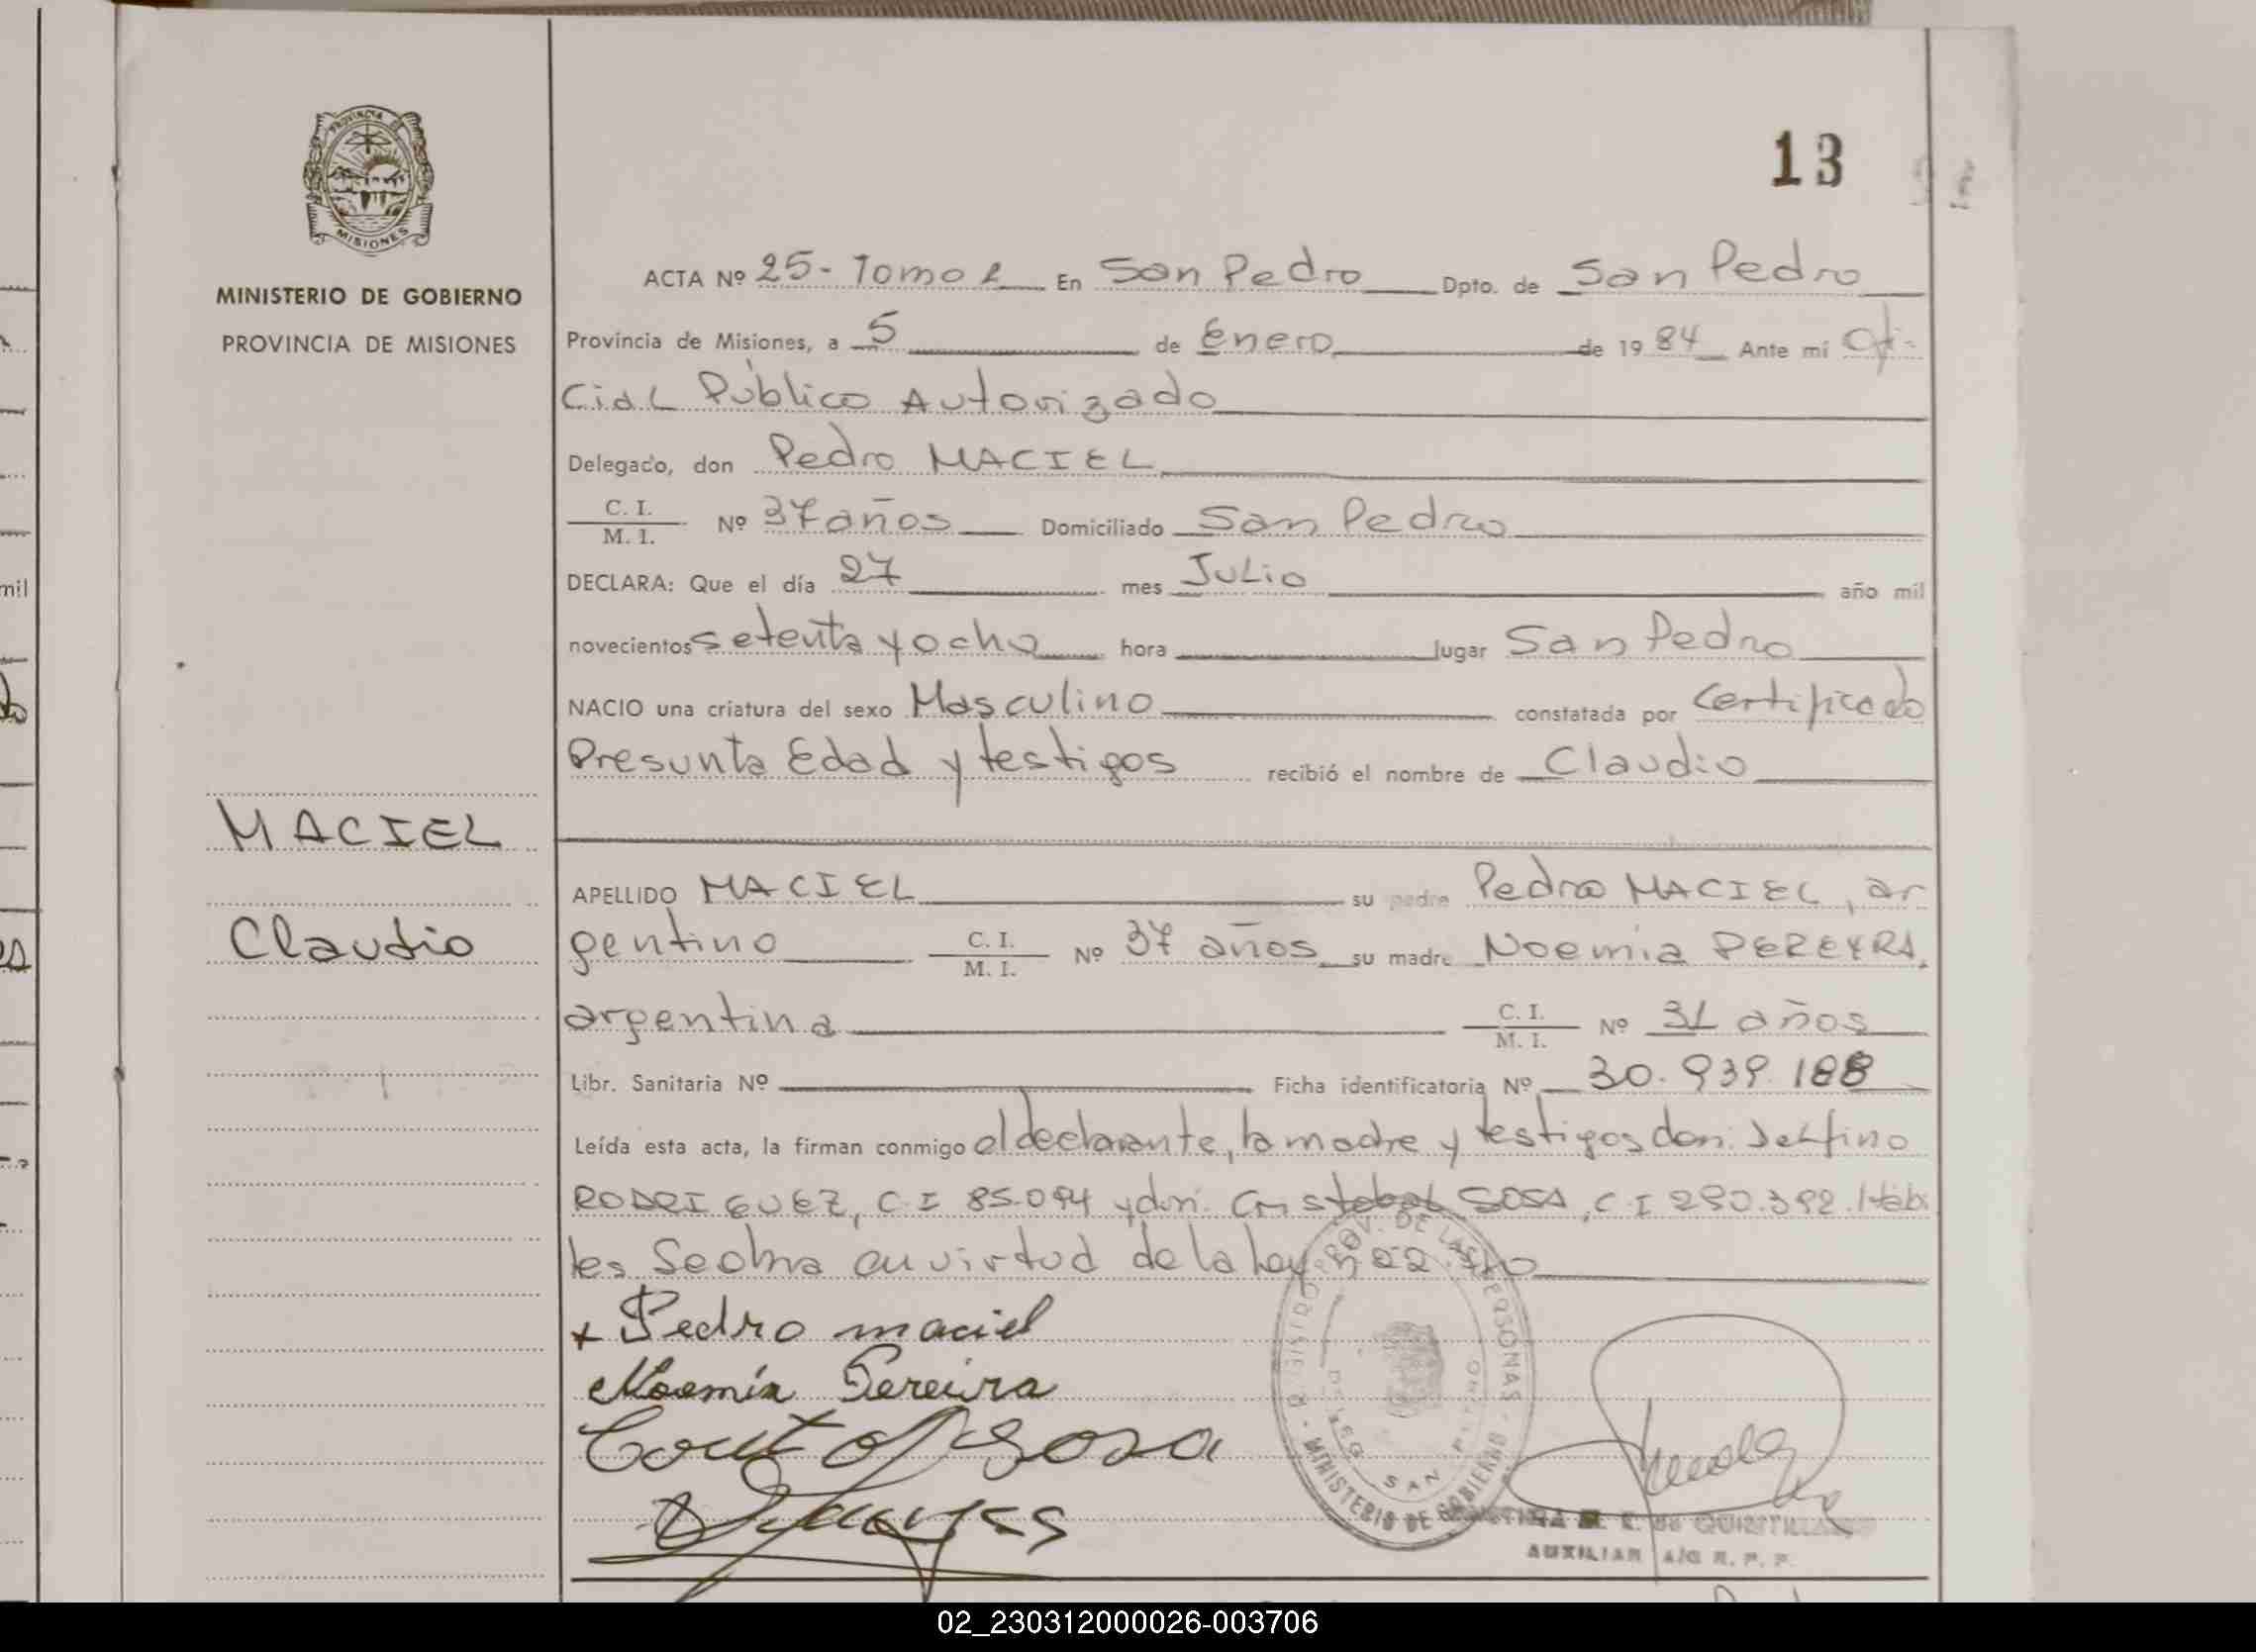 13
PROVINCIA DE
MISIONES
MINISTERIO DE GOBIERNO
PROVINCIA DE MISIONES
MACIEL
Claudio
ACTA Nº 25- Tomo 1 En San Pedro Dpto. de San Pedro
Provincia de Misiones, a 5 de Enero de 1984 Ante mí Ofi-
cial Público Autorizado
Delegado, don Pedro MACIEL
C. I.
M. I. Nº 37 años Domiciliado San Pedro
DECLARA: Que el día 27 mes Julio año mil
novecientos setenta y ocho hora lugar San Pedro
NACIO una criatura del sexo Masculino constatada por Certificado
Presunta Edad y testigos recibió el nombre de Claudio
APELLIDO MACIEL su padre Pedro MACIEL, ar
gentino C. I. M. I. Nº 37 años su madre Noemia PEREYRA,
argentina C. I. M. I. Nº 31 años
Libr. Sanitaria Nº Ficha identificatoria Nº 30.939.188
Leída esta acta, la firman conmigo el declarante, la madre y testigos don: Delfino
RODRIGUEZ, C.I 85.094 y don: SOSA, C.I 290.392. Hábi
les Se obra en virtud de la ley
x Pedro maciel
Noemia Pereira
Sosa
MINISTERIO DE GOBIERNO
PROV. DE LAS PERSONAS
SAN PEDRO
de QUINTILLA
AUXILIAR A/C R. P. P.
mil
02_230312000026-003706